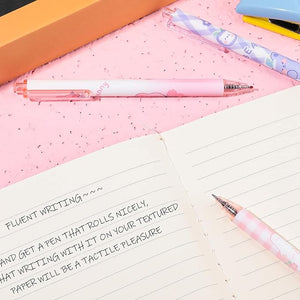 FLUENT WRITING~~~
AND GET A PEN THAT ROLLS NICELY,
HAT WRITING WITH IT ON YOUR TEXTURED
PAPER WILL BE A TACTILE PLEASURE